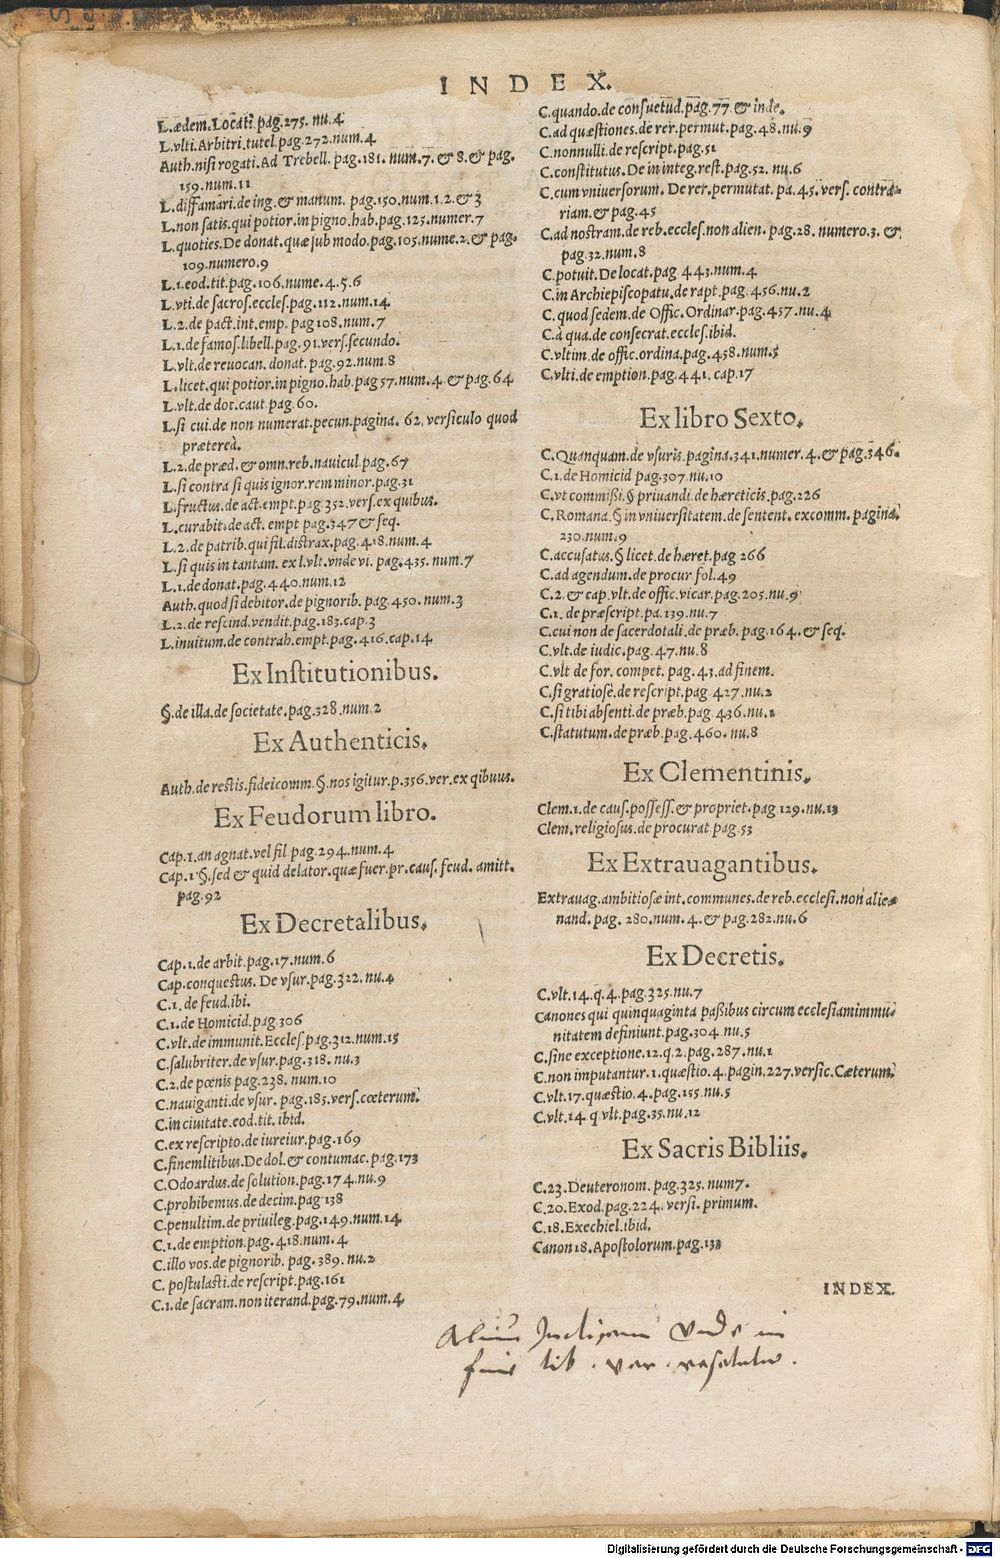 INDEX.
L.ædem.Locati.pag.275. nu.4
L.vlti.Arbitri.tutel.pag.272.num.4
Auth.nisi rogati.Ad Trebell. pag.181. num.7.& 8.& pag.
159.num.11
L.diffamari.de ing.& manum. pag.150.num.1.2.& 3
L.non satis.qui potior.in pigno.hab.pag.125.numer.7
L.quoties.De donat.quæ sub modo.pag.105.nume.2.& pag.
109.numero.9
L.1.eod.tit.pag.106.nume.4.5.6
L.vti.de sacros.eccles.pag.112.num.14
L.2.de pact.int.emp. pag 108.num.7
L.1.de famos.libell.pag.91.vers.secundo.
L.vlt.de reuocan. donat.pag.92.num.8
L.licet.qui potior.in pigno.hab.pag 57.num.4.& pag.64
L.vlt.de dot.caut pag.60.
L.si cui.de non numerat.pecun.pagina. 62.versiculo quod
prætereà.
L.2.de præd.& omn.reb.nauicul pag.67
L.si contra si quis ignor.rem minor.pag.31
L.fructus.de act.empt.pag 352.vers.ex quibus.
L.curabit.de act. empt pag.347 & seq.
L.2.de patrib.qui fil.distrax.pag.418.num.4
L.si quis in tantam. ex l.vlt.vnde vi. pag.435. num.7
L.1.de donat.pag.440.num.12
Auth.quod si debitor.de pignorib. pag.450.num.3
L.2.de rescind.vendit.pag.183.cap.3
L.inuitum.de contrah.empt.pag.416.cap.14
Ex Institutionibus.
§.de illa.de societate.pag.328.num.2
Ex Authenticis.
Auth.de restis.fideicomm.§.nos igitur.p.356.ver.ex qibuus.
Ex Feudorum libro.
Cap.1.an agnat.vel fil pag.294.num.4
Cap.1.§.sed & quid delator.quæ fuer.pr.caus.feud. amitt.
pag.92
Ex Decretalibus.
Cap.1.de arbit.pag.17.num.6
Cap.conquestus. De vsur.pag.322.nu.4
C.1.de feud.ibi.
C.1.de Homicid.pag 306
C.vlt.de immunit.Eccles.pag.312.num.15
C.salubriter.de vsur.pag.318. nu.3
C.2.de pœnis pag.238. num.10
C.nauiganti.de vsur. pag.185.vers.cœterum.
C.in ciuitate.eod.tit.ibid.
C.ex rescripto.de iureiur.pag.169
C.finem litibus.De dol.& contumac.pag.173
C.Odoardus.de solution.pag.174.nu.9
C.prohibemus.de decim.pag 138
C.penultim.de priuileg.pag.149.num.14
C.1.de emption.pag.418.num.4
C.illo vos.de pignorib. pag.389.nu.2
C. postulasti.de rescript.pag.161
C.1.de sacram.non iterand.pag.79.num.4
C.quando.de consuetud.pag.77 & inde.
C.ad quæstiones.de rer.permut.pag.48.nu.9
C.nonnulli.de rescript.pag.51
C.constitutus.De in integ.rest.pag.52. nu.6
C.cum vniuersorum. De rer.permutat. pa.45. vers. contra-
riam.& pag.45
C.ad nostram.de reb.eccles.non alien. pag.28. numero.3. &
pag.32.num.8
C.potuit.De locat.pag 443.num.4
C.in Archiepiscopatu.de rapt.pag.456.nu.2
C.quod sedem.de Offic.Ordinar.pag.457.nu.4
C.à qua.de consecrat.eccles.ibid.
C.vltim.de offic.ordina.pag.458.num.5
C.vlti.de emption.pag.441.cap.17
Ex libro Sexto.
C.Quanquam.de vsuris.pagina.341.numer.4.& pag.346.
C.1.de Homicid pag.307 nu.10
C.vt commissi.§ priuandi.de hæreticis.pag.226
C.Romana.§ in vniuersitatem.de sentent. excomm. pagina.
230.num.9
C.accusatus.§ licet.de hæret.pag 266
C.ad agendum.de procur fol.49
C.2.& cap.vlt.de offic.vicar.pag.205.nu.9
C.1.de præscript.pa.139.nu.7
C.cui non de sacerdotali.de præb. pag.164.& seq.
C.vlt.de iudic.pag.47.nu.8
C.vlt de for. compet. pag.43.ad finem.
C.si gratiosè.de rescript.pag 427.nu.2
C.si tibi absenti.de præb.pag 436.nu.1
C.statutum.de præb.pag.460. nu.8
Ex Clementinis.
Clem.1.de caus.possess.& propriet.pag 129.nu.13
Clem.religiosus.de procurat pag.53
Ex Extrauagantibus.
Extrauag.ambitiosæ int.communes.de reb.ecclesi.non alie-
nand. pag. 280.num.4.& pag.282.nu.6
Ex Decretis.
C.vlt.14.q.4.pag.325.nu.7
Canones qui quinquaginta passibus circum ecclesiam immu-
nitatem definiunt.pag.304.nu.5
C.sine exceptione.12.q.2.pag.287.nu.1
C.non imputantur.1.quæstio.4.pagin.227.versic.Cæterum.
C.vlt.17.quæstio.4.pag.155.nu.5
C.vlt.14.q vlt.pag.35.nu.12
Ex Sacris Bibliis.
C.23.Deuteronom.pag.325.num7.
C.20.Exod.pag.224. versi. primum.
C.18.Exechiel.ibid.
Canon 18.Apostolorum.pag.133
INDEX.
Alium Indicem vide in
fine lib.
Digitalisierung gefördert durch die Deutsche Forschungsgemeinschaft - DFG